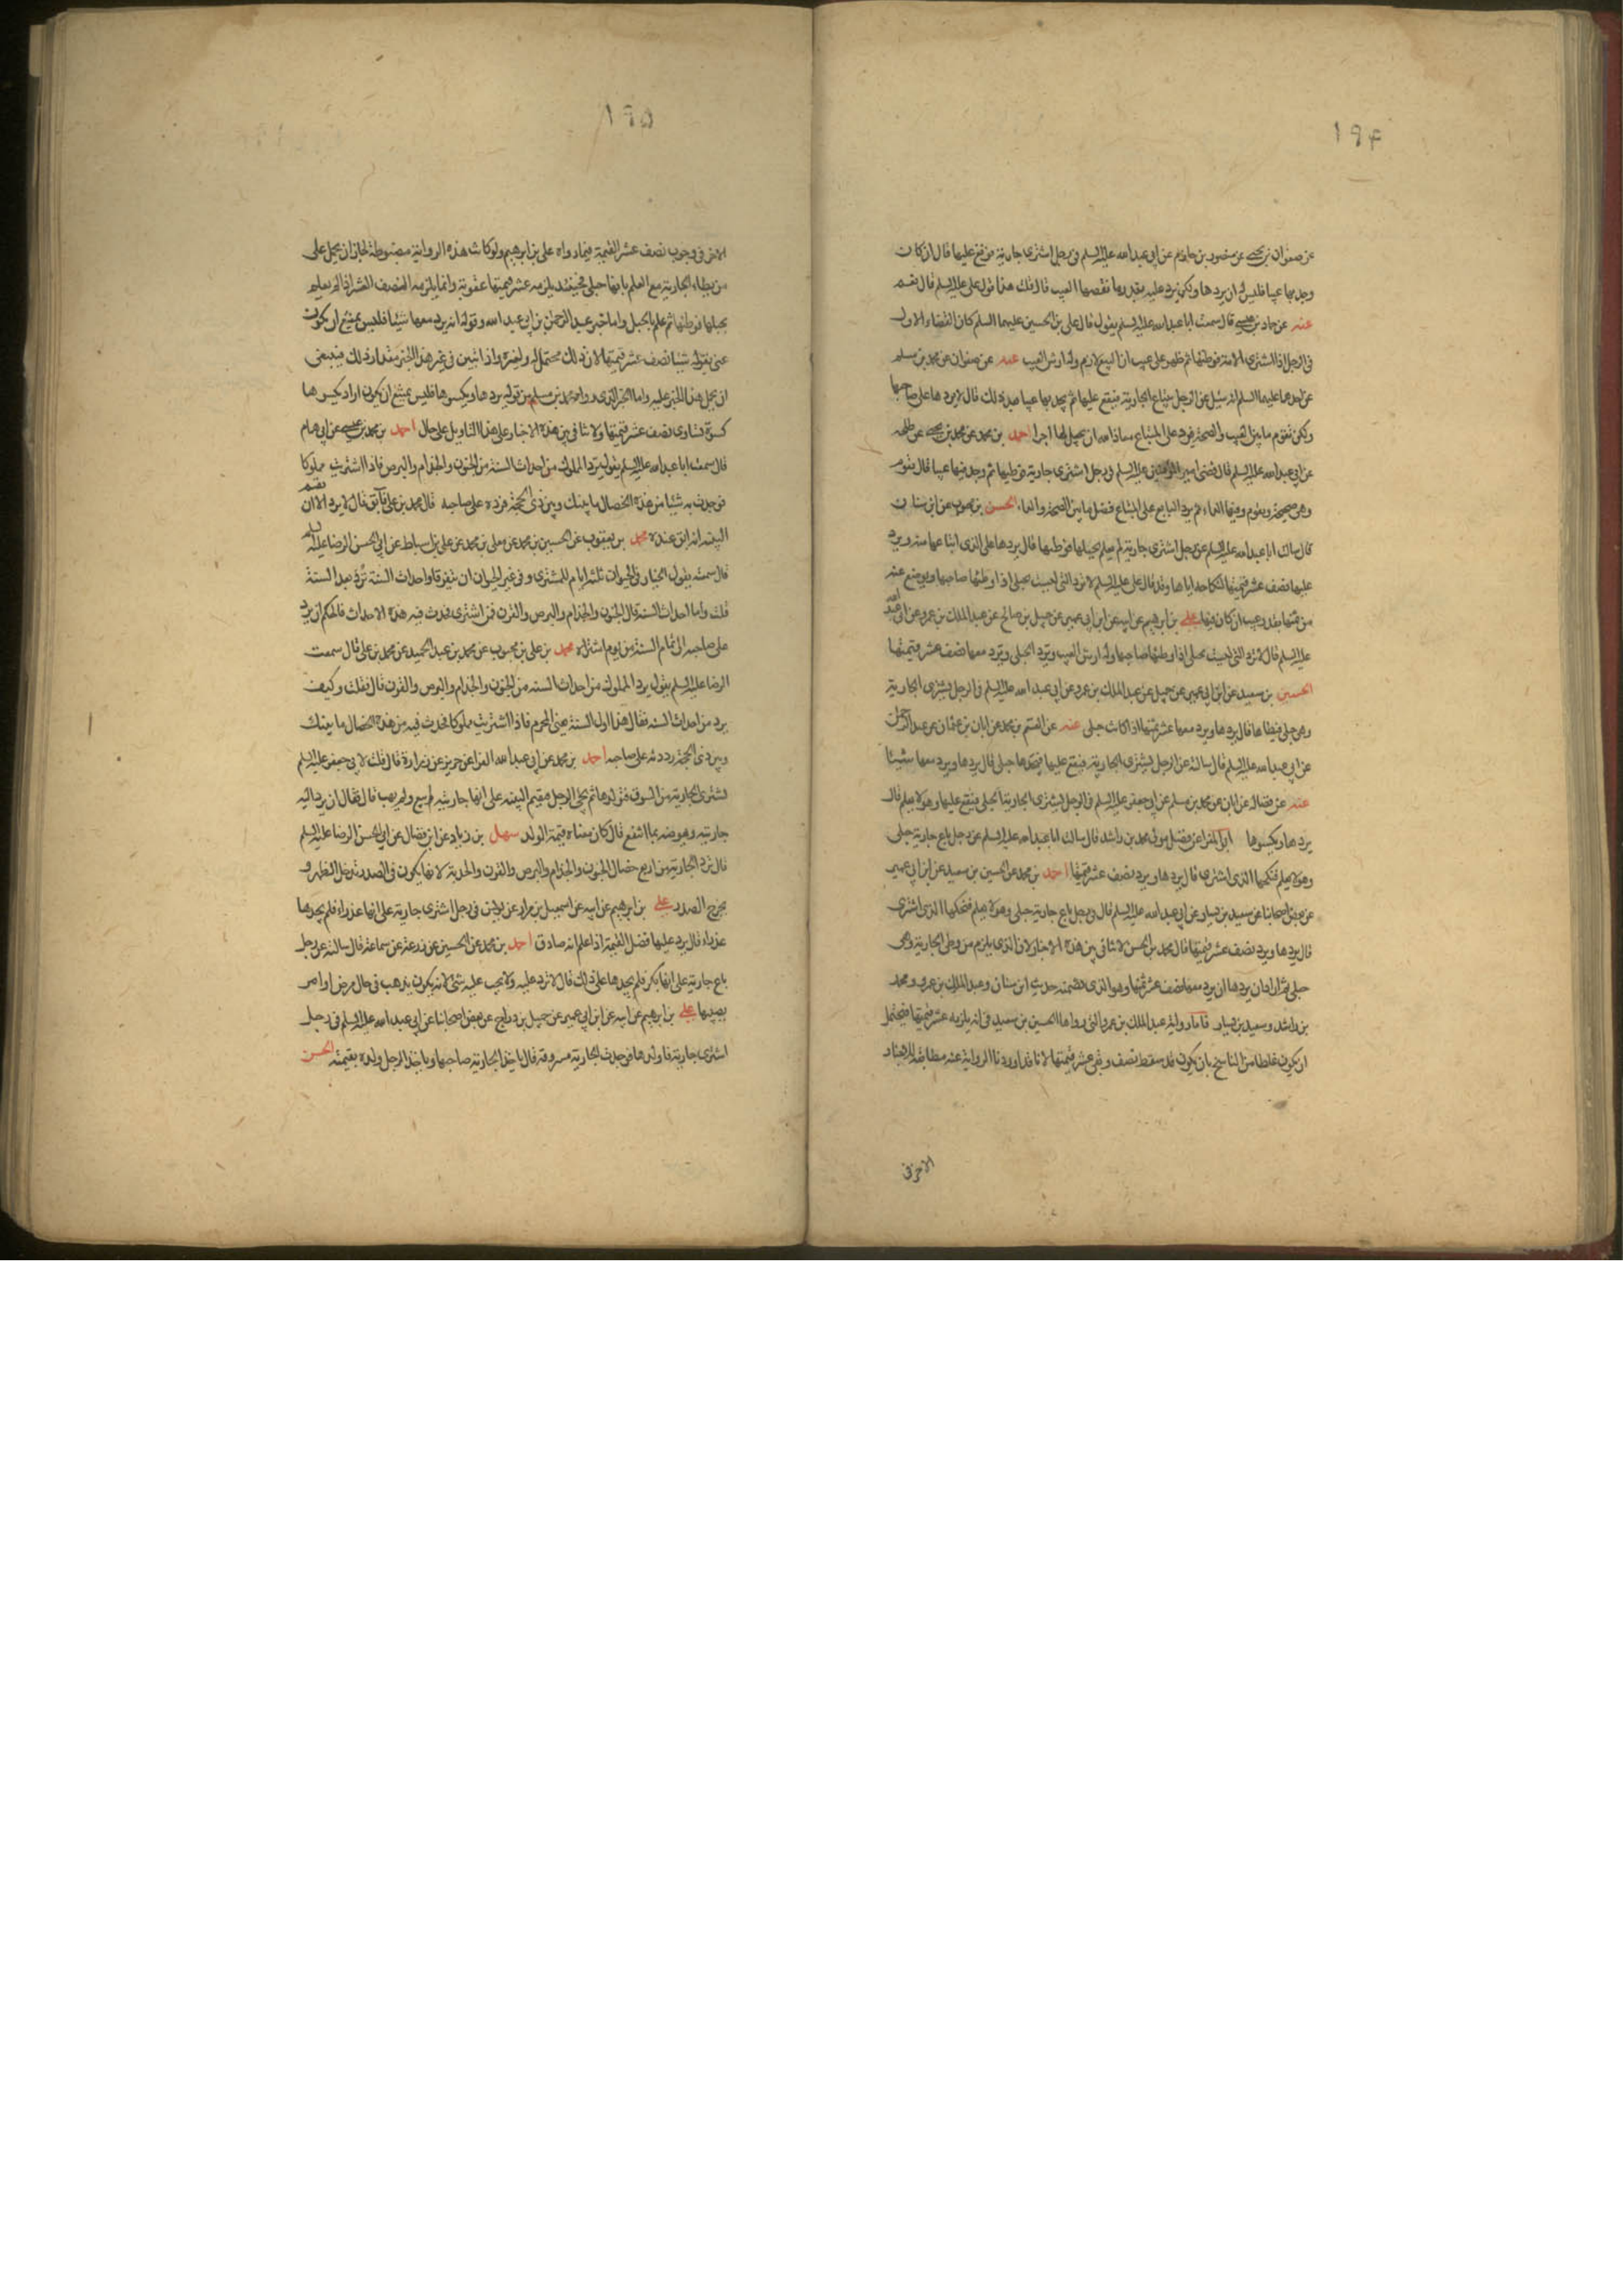 ١٩۴
عن صفوان بن يحيى عن منصور بن حازم عن ابى عبد الله عليه السلم فى رجل اشترى جارية فوقع عليها قال ان كانت
وجد بها عيبا فليس له ان يردها ولكن يرد عليه بقدر ما نقصها العيب قال قلت هذا قول على عليه السلم قال نعم
عنه عن حماد بن عيسى قال سمعت ابا عبد الله عليه السلم يقول قال على بن الحسين عليهما السلم كان القضاء الاول
فى الرجل اذا اشترى الامة فوطئها ثم ظهر على عيب ان البيع لازم وله ارش العيب عنه عن صفوان عن محمد بن مسلم
عن احدهما عليهما السلم انه سئل عن الرجل يبتاع الجارية فيقع عليها ثم يجد بها عيبا بعد ذلك قال لا يردها على صاحبها
ولكن تقوم ما بين العيب والصحة فيرد على المبتاع معاذ الله ان يجعل لها اجرا احمد بن محمد عن محمد بن يحيى عن طلحه
عن ابى عبد الله عليه السلم قال قضى امير المؤمنين عليه السلم فى رجل اشترى جارية فوطيها ثم وجد فيها عيبا قال تقوم
وهى صحيحة وتقوم وفيها الداء ثم يرد البايع على المبتاع فضل ما بين الصحة والداء الحسن بن محبوب عن ابن سنان
قال سالت ابا عبد الله عليه السلم عن رجل اشترى جارية لم يعلم بحبلها فوطيها قال يردها على الذى ابتاعها منه ويرد
عليها نصف عشر قيمتها لنكاحه اياها وقد قال على عليه السلم لا ترد التى ليست بحبلى اذا وطئها صاحبها ويوضع عنه
من ثمنها بقدر عيب ان كان فيها على بن ابرهيم عن ابيه عن ابن ابى عمير عن جميل بن صالح عن عبد الملك بن عمرو عن ابى عبد الله
عليه السلم قال لا ترد التى ليست بحبلى اذا وطئها صاحبها وله ارش العيب وترد الحبلى وترد معها نصف عشر قيمتها
الحسين بن سعيد عن ابن ابى عمير عن جميل عن عبد الملك بن عمرو عن ابى عبد الله عليه السلم فى الرجل يشترى الجارية
وهى حبلى فيطاها قال يردها ويرد معها عشر ثمنها اذا كانت حبلى عنه عن القسم بن محمد عن ابان بن عثمان عن عبد الرحمن
عن ابى عبد الله عليه السلم قال سالته عن الرجل يشترى الجارية فيقع عليها فيجدها حبلى قال يردها ويرد معها شيئا
عنه عن فضالة عن ابان عن محمد بن مسلم عن ابى جعفر عليه السلم فى الرجل يشترى الجارية الحبلى فيقع عليها وهو لا يعلم قال
يردها ويكسوها ابو المغرا عن فضيل مولى محمد بن راشد قال سالت ابا عبد الله عليه السلم عن رجل باع جارية حبلى
وهو لا يعلم فنكحها الذى اشترى قال يردها ويرد نصف عشر قيمتها احمد بن محمد عن الحسين بن سعيد عن ابن ابى عمير
عن بعض اصحابنا عن سعيد بن يسار عن ابى عبد الله عليه السلم قال فى رجل باع جارية حبلى وهو لا يعلم فنكحها الذى اشترى
قال يردها ويرد نصف عشر قيمتها قال محمد بن الحسن لا تنافى بين هذه الاخبار لان الذى يلزم من وطى الجارية وهى
حبلى ثم اراد ان يردها ان يرد معها نصف عشر ثمنها وهو الذى تضمنه حديث ابن سنان وعبد الملك بن عمرو ومحمد
بن راشد وسعيد بن يسار فاما رواية عبد الملك بن عمرو التى رواها الحسين بن سعيد فى انه يلزمه عشر قيمتها فيحتمل
ان يكون غلطا من الناسخ بان يكون قد سقط نصف وبقى عشر قيمتها لانا قد اوردنا الرواية عنه مطابقة للاخبار
الاخر فى
١٩۵
الاخر فى وجوب نصف عشر القيمة فيما رواه على بن ابرهيم ولو كانت هذه الرواية مضبوطة لجاز ان يحمل على
من يطاء الجارية مع العلم بانها حبلى فحينئذ يلزمه عشر قيمتها عقوبة وانما يلزمه النصف العشر اذا لم يعلم
بحبلها فوطئها ثم علم بالحبل واما خبر عبد الرحمن بن ابى عبد الله وقوله انه يرد معها شيئا فليس يمتنع ان يكون
عنى بقوله شيئا نصف عشر قيمتها لان ذلك محتمل له ولغيره واذا تبين فى غير هذا الخبر مقدار ذلك فينبغى
ان يحمل هذا الخبر عليه واما الخبر الذى رواه محمد بن مسلم من قوله يردها ويكسوها فليس يمتنع ان يكون اراد يكسوها
كسوة تساوى نصف عشر قيمتها ولا تنافى بين هذه الاخبار على هذا التاويل على حال احمد بن محمد بن عيسى عن ابى همام
قال سمعت ابا عبد الله عليه السلم يقول يرد المملوك من احداث السنة من الجنون والجذام والبرص فاذا اشتريت مملوكا
فوجدت به شيئا من هذه الخصال ما بينك وبين ذى الحجة فرده على صاحبه قال محمد بن على فابق قال لا يرد الا ان يقيم
البينة انه ابق عنده محمد بن يعقوب عن الحسين بن محمد عن معلى بن محمد عن على بن اسباط عن ابى الحسن الرضا عليه السلم
قال سمعته يقول الخيار فى الحيوان ثلثة ايام للمشترى وفى غير الحيوان ان يتفرقا واحداث السنة ترد بعد السنة
قلت واما احداث السنة قال الجنون والجذام والبرص والقرن فمن اشترى فحدث فيه هذه الاحداث فالحكم ان يرد
على صاحبه الى تمام السنة من يوم اشتراه محمد بن على بن محبوب عن محمد بن عبد الحميد عن محمد بن على قال سمعت
الرضا عليه السلم يقول يرد المملوك من احداث السنه من الجنون والجذام والبرص والقرن قال فقلت وكيف
يرد من احداث السنه فقال هذا اول السنة يعنى المحرم فاذا اشتريت مملوكا فحدث فيه من هذه الخصال ما بينك
وبين ذى الحجة رددته على صاحبه احمد بن محمد عن ابى عبد الله الفراء عن حريز عن زرارة قال قلت لابى جعفر عليه السلم
يشترى الجارية من السوق فيولدها ثم يجئ الرجل فيقيم البينه على انها جاريته لم يبع ولم يهب قال فقال ان يرد اليه
جاريته ويعوضه بما انتفع قال كان معناه قيمة الولد سهل بن زياد عن ابن فضال عن ابى الحسن الرضا عليه السلم
قال ترد الجارية من اربع خصال الجنون والجذام والبرص والقرن والحدبة لانها يكون فى الصدر تدخل الظهر و
يخرج الصدر على بن ابرهيم عن ابيه عن اسمعيل بن مرار عن يونس فى رجل اشترى جارية على انها عذراء فلم يجدها
عذراء قال يرد عليها فضل القيمة اذا علم انه صادق احمد بن محمد عن الحسين عن زرعة عن سماعة قال سالته عن رجل
باع جارية على انها بكر فلم يجدها على ذلك قال لا ترد عليه ولا يجب عليه شئ لانه يكون يذهب فى حال مرض او امر
يصيبها على بن ابرهيم عن ابيه عن ابن ابى عمير عن جميل بن دراج عن بعض اصحابنا عن ابى عبد الله عليه السلم فى رجل
اشترى جارية فاولدها فوجدت الجارية مسروقة قال ياخذ الجارية صاحبها وياخذ الرجل ولده بقيمته الحسن